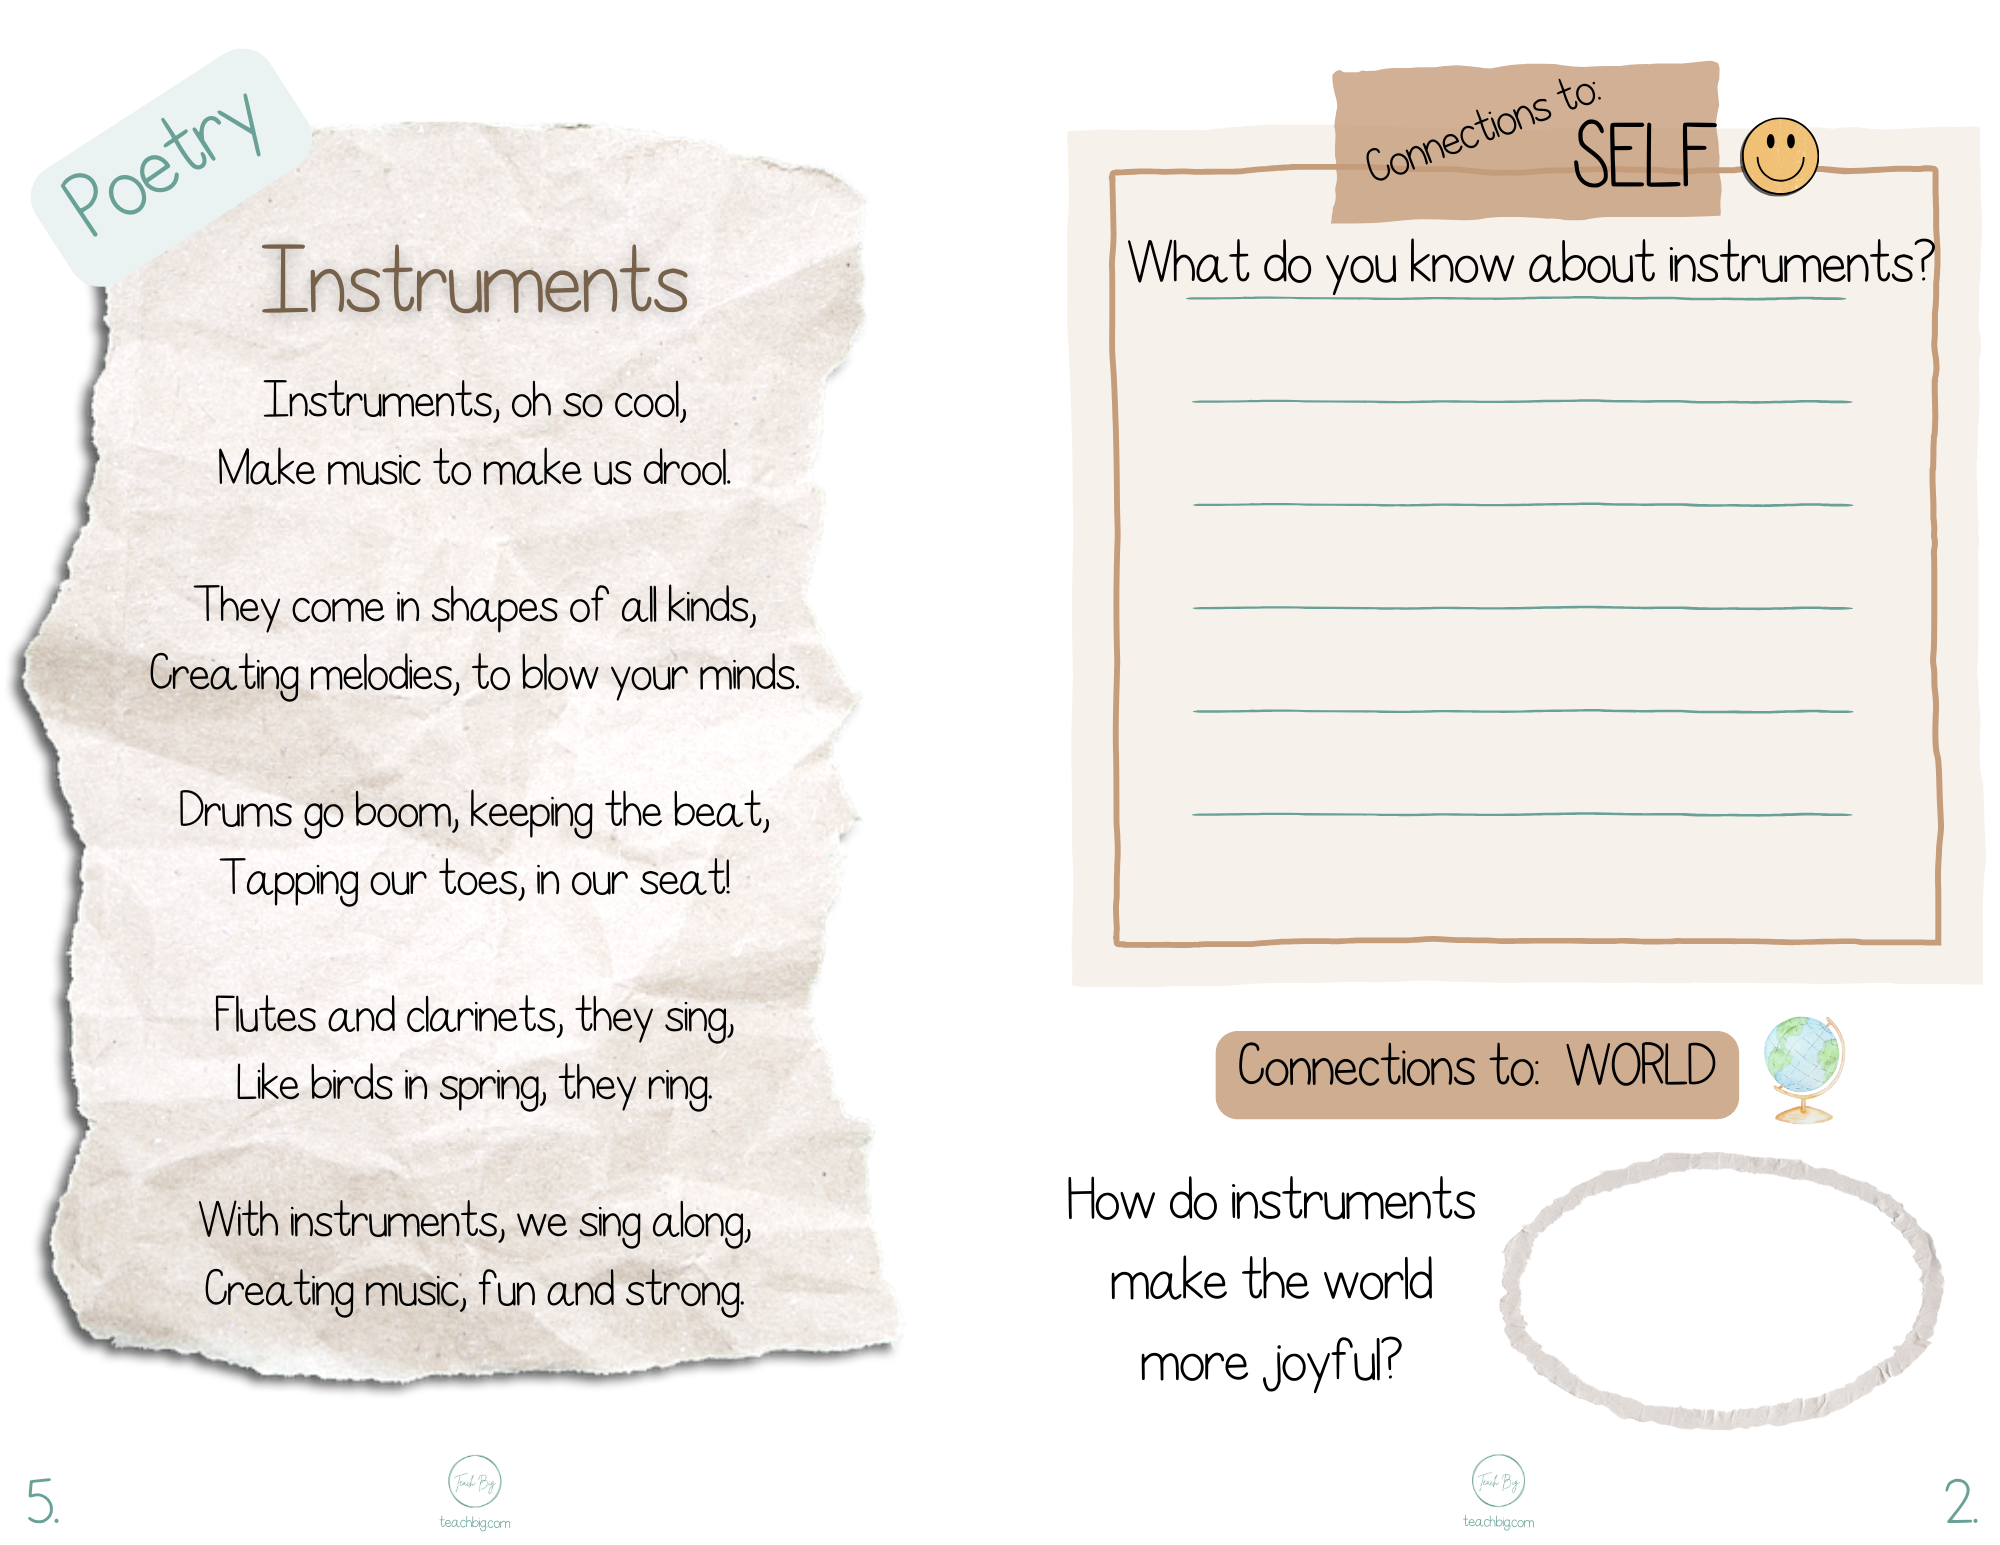 Poetry
Instruments
Instruments, oh so cool,
Make music to make us drool.
They come in shapes of all kinds,
Creating melodies, to blow your minds.
Drums go boom, keeping the beat,
Tapping our toes, in our seat!
Flutes and clarinets, they sing,
Like birds in spring, they ring.
With instruments, we sing along,
Creating music, fun and strong.
5.
Teach Big
teachbig.com
Connections to:
SELF
What do you know about instruments?
Connections to: WORLD
How do instruments
make the world
more joyful?
Teach Big
teachbig.com
2.